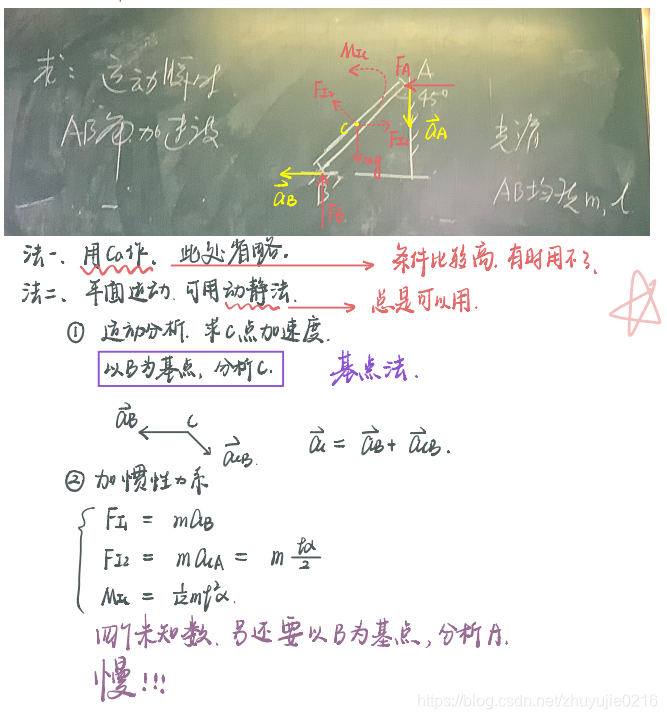 求：运动瞬时
AB角加速度
M_IC
F_A
A
45°
F_I2
C
F_I1
a⃗_A
mg
a⃗_B
B
F_B
光滑
AB均质m, l
法一、用C_a作、此处省略。→ 条件比较高.有时用不了、
法二、平面运动.可用动静法.→ 总是可以用.
① 运动分析.求C点加速度.
以B为基点，分析C. 基点法.
a⃗_B C a⃗_CB. a⃗_C = a⃗_B + a⃗_CB.
② 加惯性力系
F_I1 = ma_B
F_I2 = ma_CA = m lα/2
M_IC = 1/12 ml²α.
四个未知数.另还要以B为基点，分析A.
慢!!!
https://blog.csdn.net/zhuyujie0216